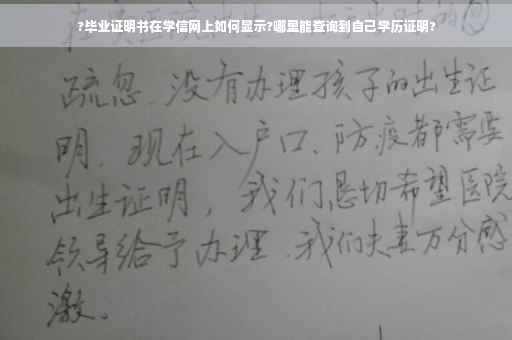 ?毕业证明书在学信网上如何显示?哪里能查询到自己学历证明?
疏忽、没有办理孩子的出生证
明、现在入户口、防疫都需要
出生证明，我们恳切希望医院
领导给予办理、我们夫妻万分感
激。